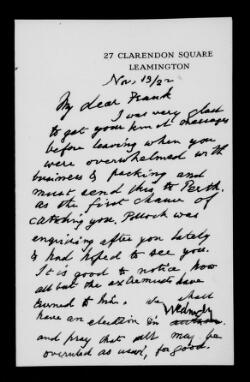 27 CLARENDON SQUARE
LEAMINGTON
Nov, 13/22
My dear Frank
I was very glad
to get your kind messages
before leaving when you
were overwhelmed with
business & packing and
must send this to Perth,
as the first chance of
catching you. Pollock was
enquiring after you lately
& had hoped to see you.
It is good to notice, how
all but the extremists have
turned to We shall
have an election in
and pray that all may be
overruled as usual, for good.